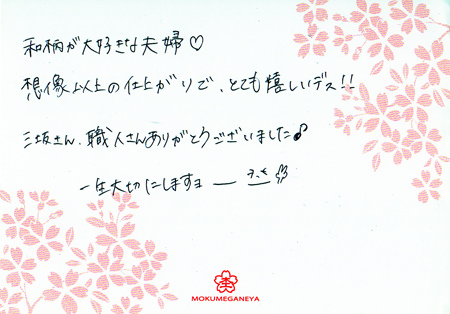 和柄が大好きな夫婦♡
想像以上の仕上がりで、とても嬉しいデス!!
三坂さん、職人さんありがとうございました♪
一生大切にしますョ ー
MOKUMEGANEYA